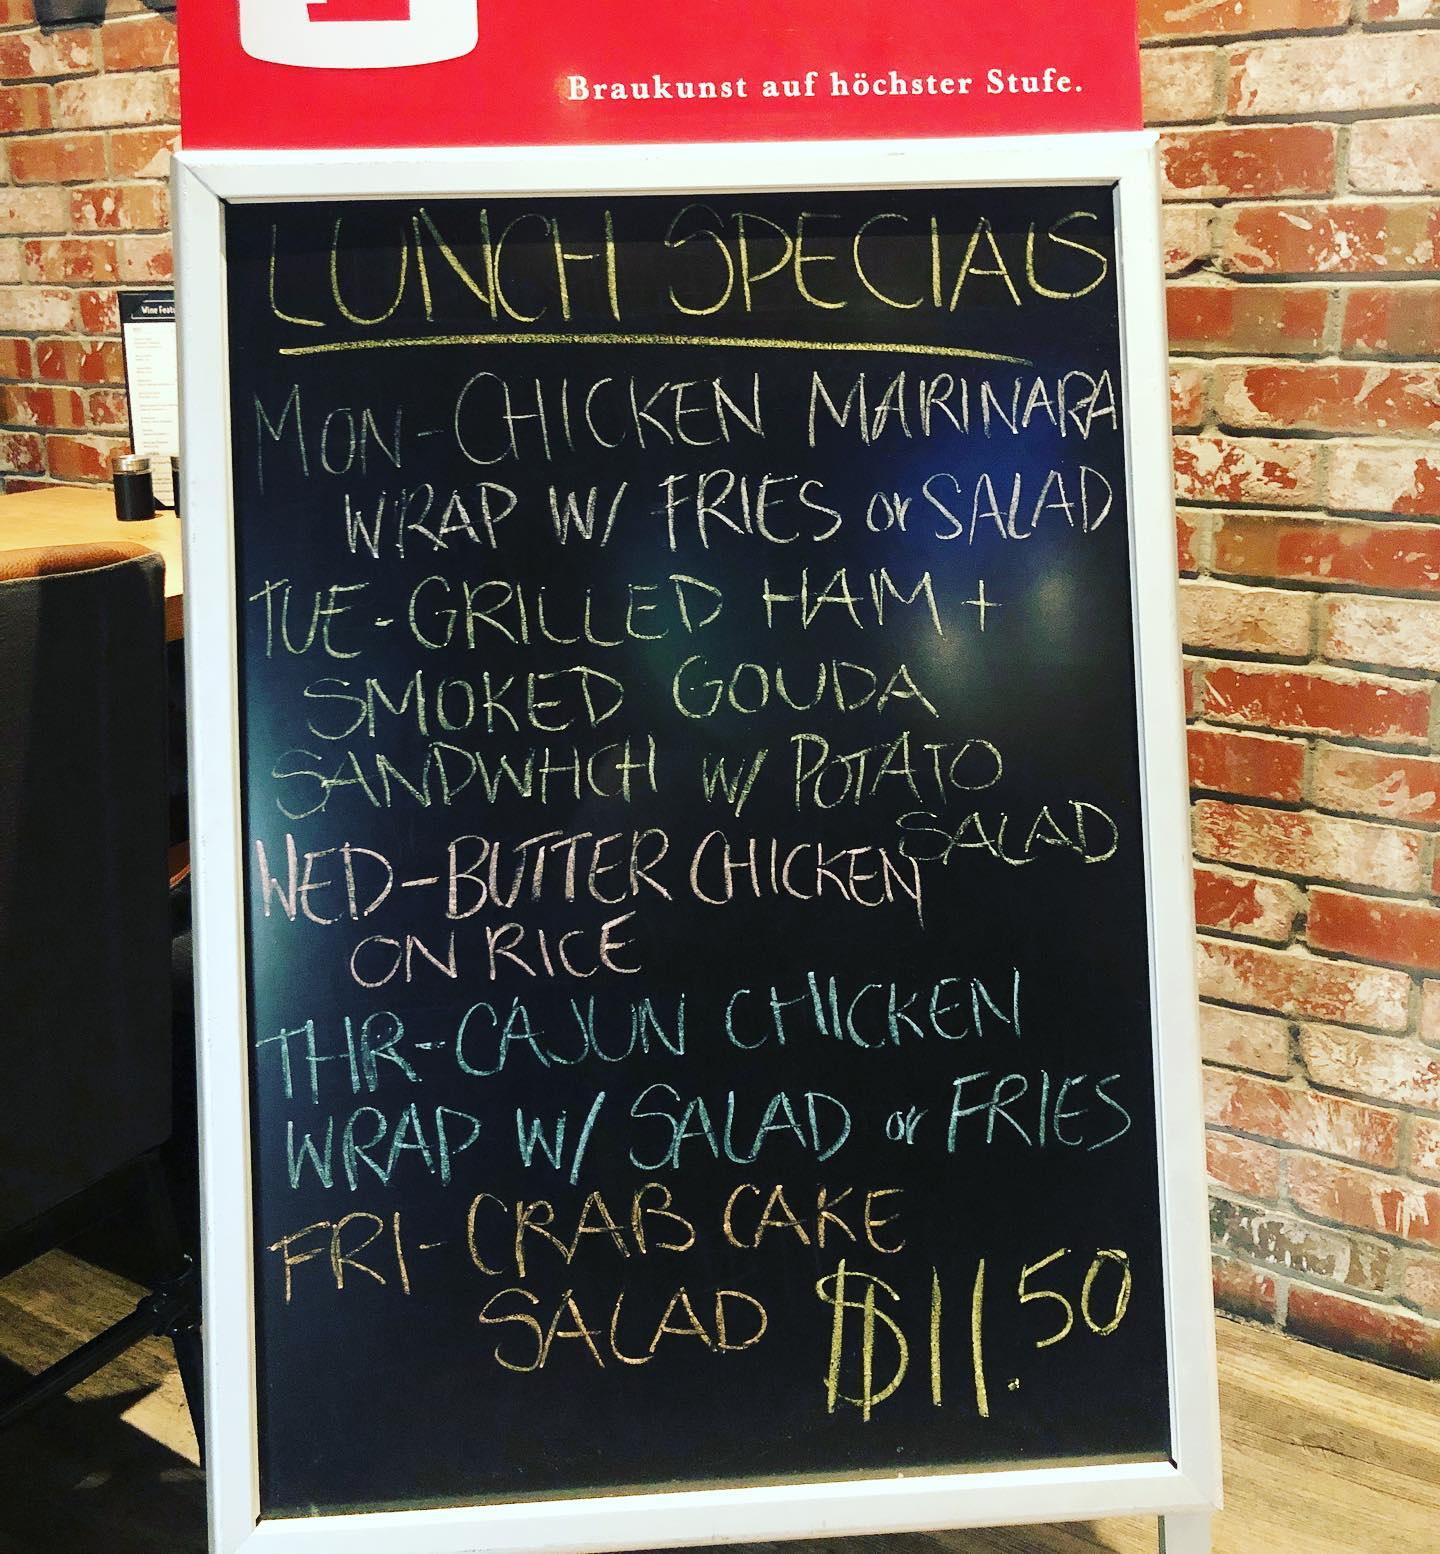 Braukunst auf höchster Stufe.
LUNCH SPECIALS
Wine Feat
MON-CHICKEN MARINARA
WRAP W/ FRIES or SALAD
TUE-GRILLED HAM +
SMOKED GOUDA
SANDWHCH W/ POTATO
SALAD
WED-BUTTER CHICKEN
ON RICE
THR-CAJUN CHICKEN
WRAP W/ SALAD or FRIES
FRI-CRAB CAKE
SALAD $11.50